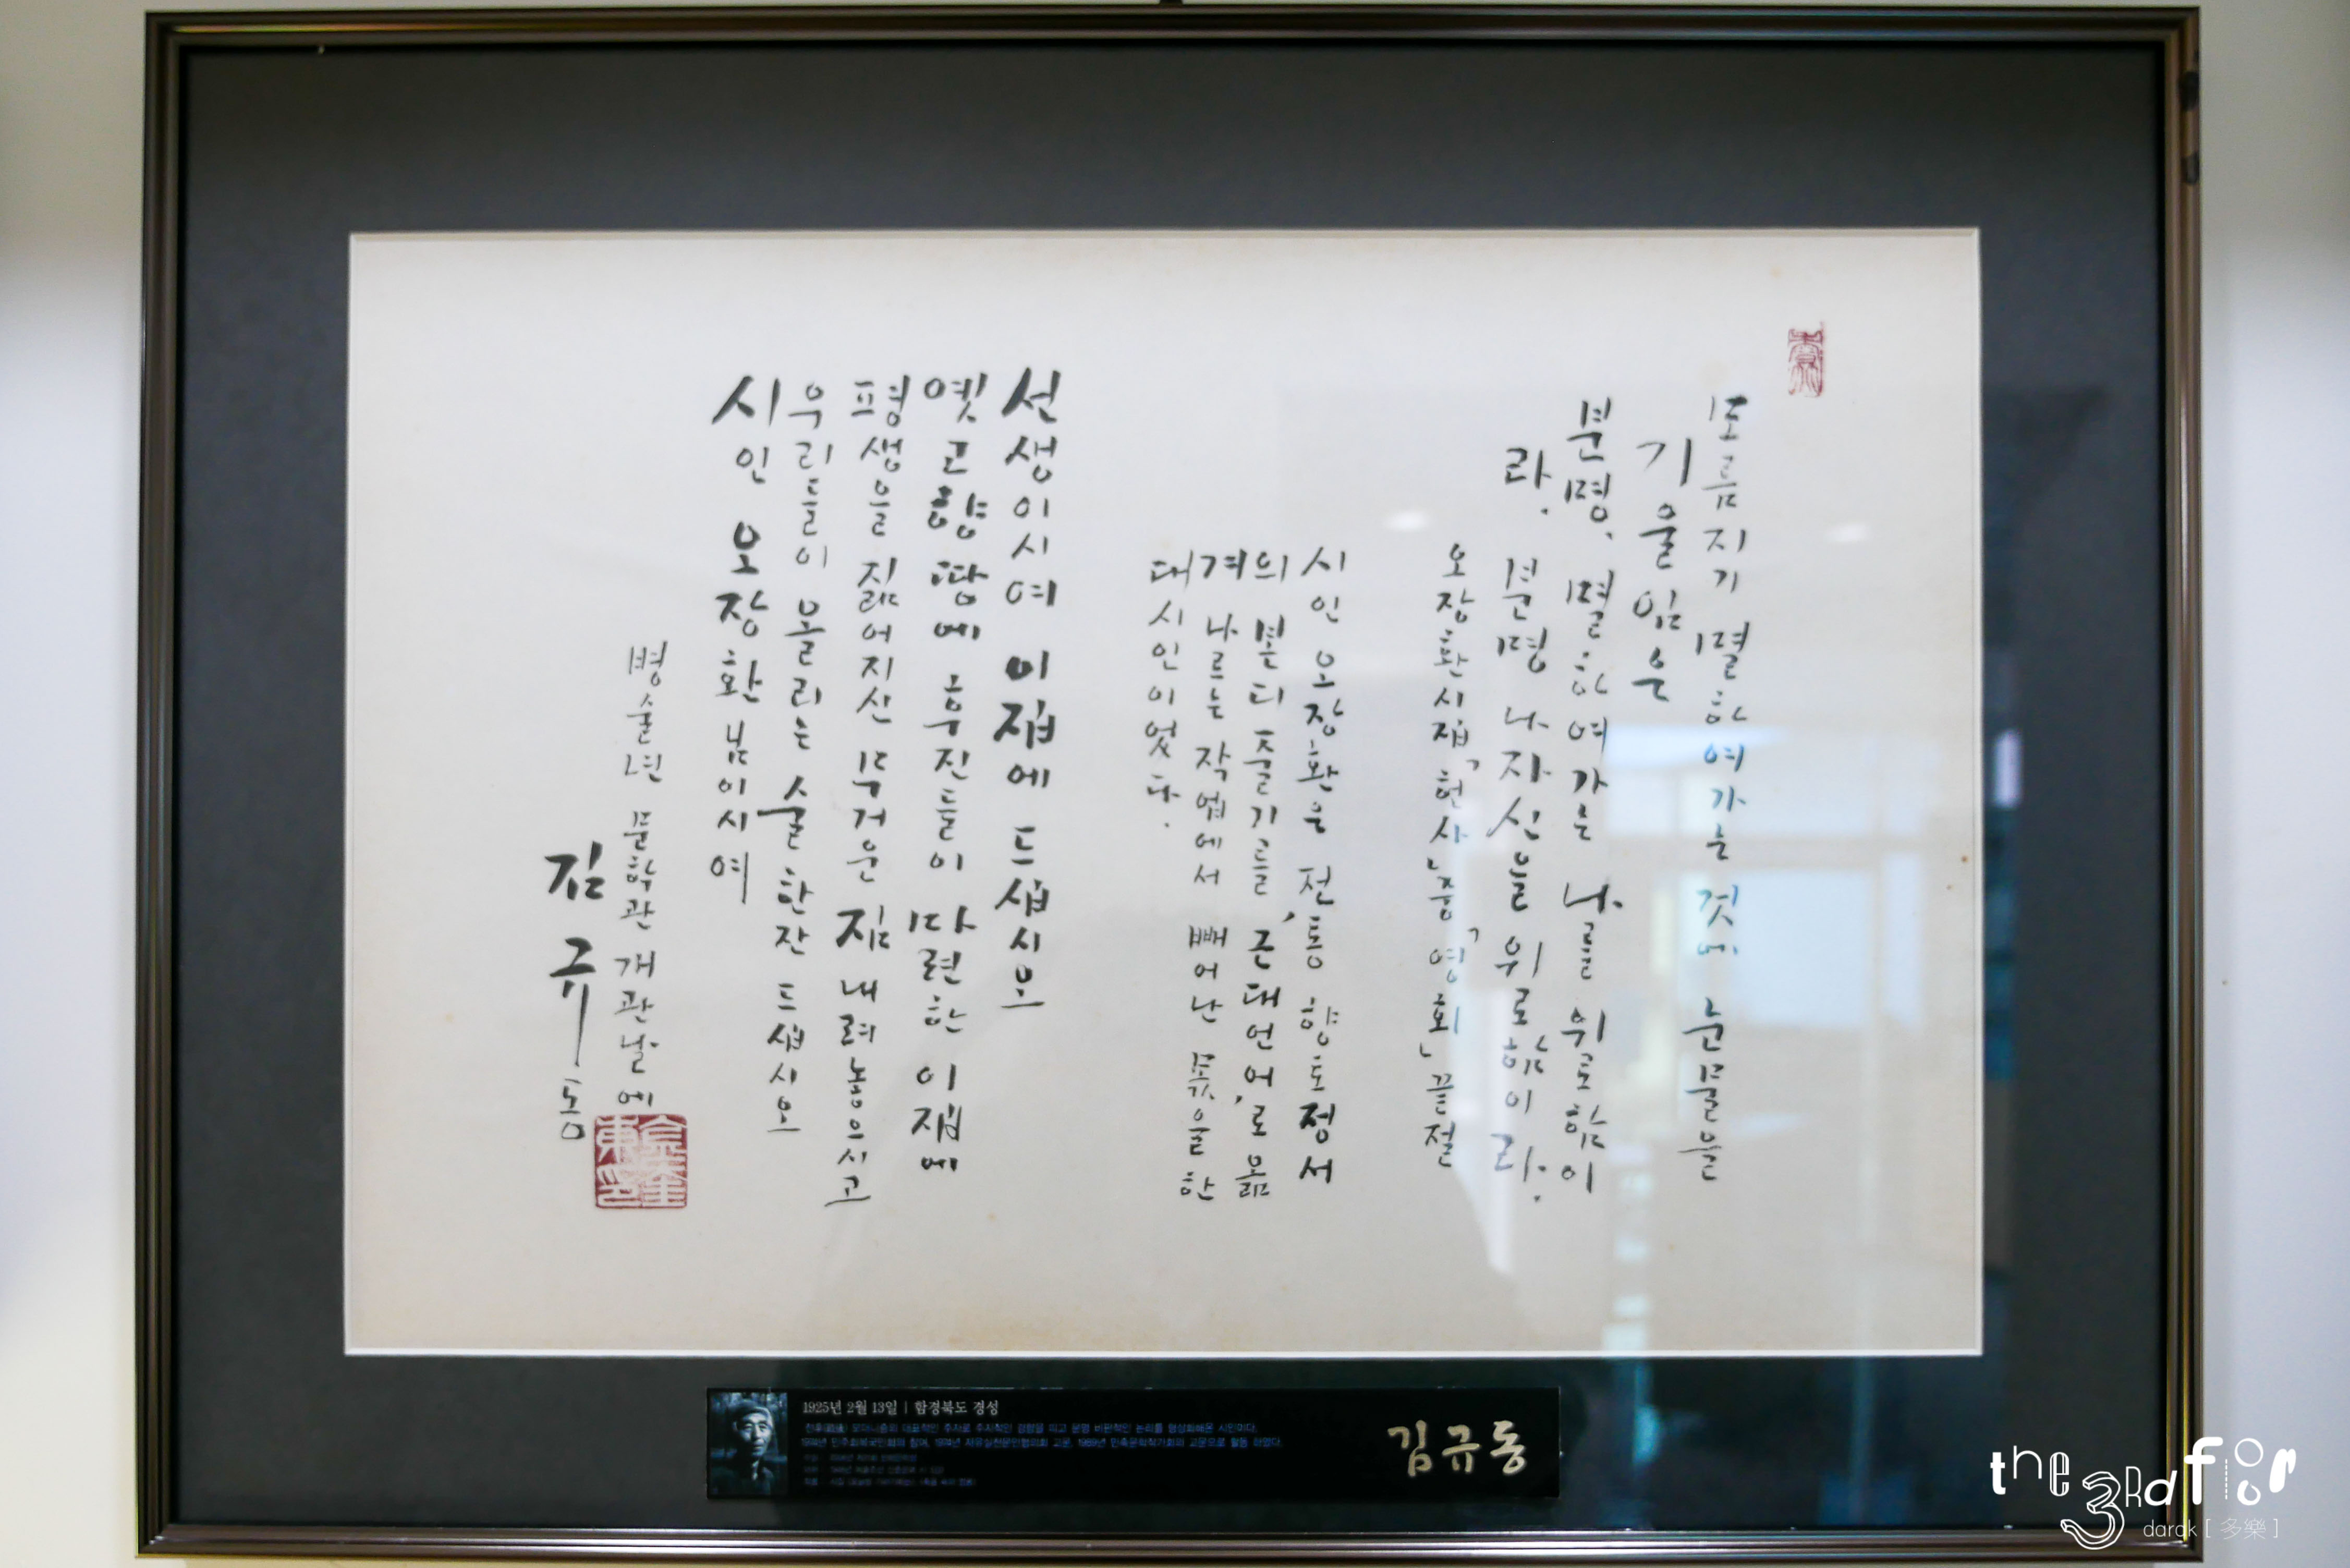 모름지기 멸하여가는 것에 눈물을
기울임은
분명, 멸하여가는 나를 위로함이
라. 분명 나 자신을 위로함이라.
오장환 시집「헌사」중「영회」끝절
시인 오장환은 전통 향토정서
의 본디 줄기를 ‘근대언어’로 옮
겨 나르는 작업에서 빼어난 몫을 한
대시인이었다.
선생이시여 이 집에 드십시오
옛 고향 땅에 후진들이 마련한 이 집에
평생을 짊어지신 무거운 짐 내려놓으시고
우리들이 올리는 술 한잔 드십시오
시인 오장환 님이시여
병술년 문학관 개관날에
김규동
1925년 2월 13일 | 함경북도 경성
김규동
the 3rd floor
darak [ 多樂 ]